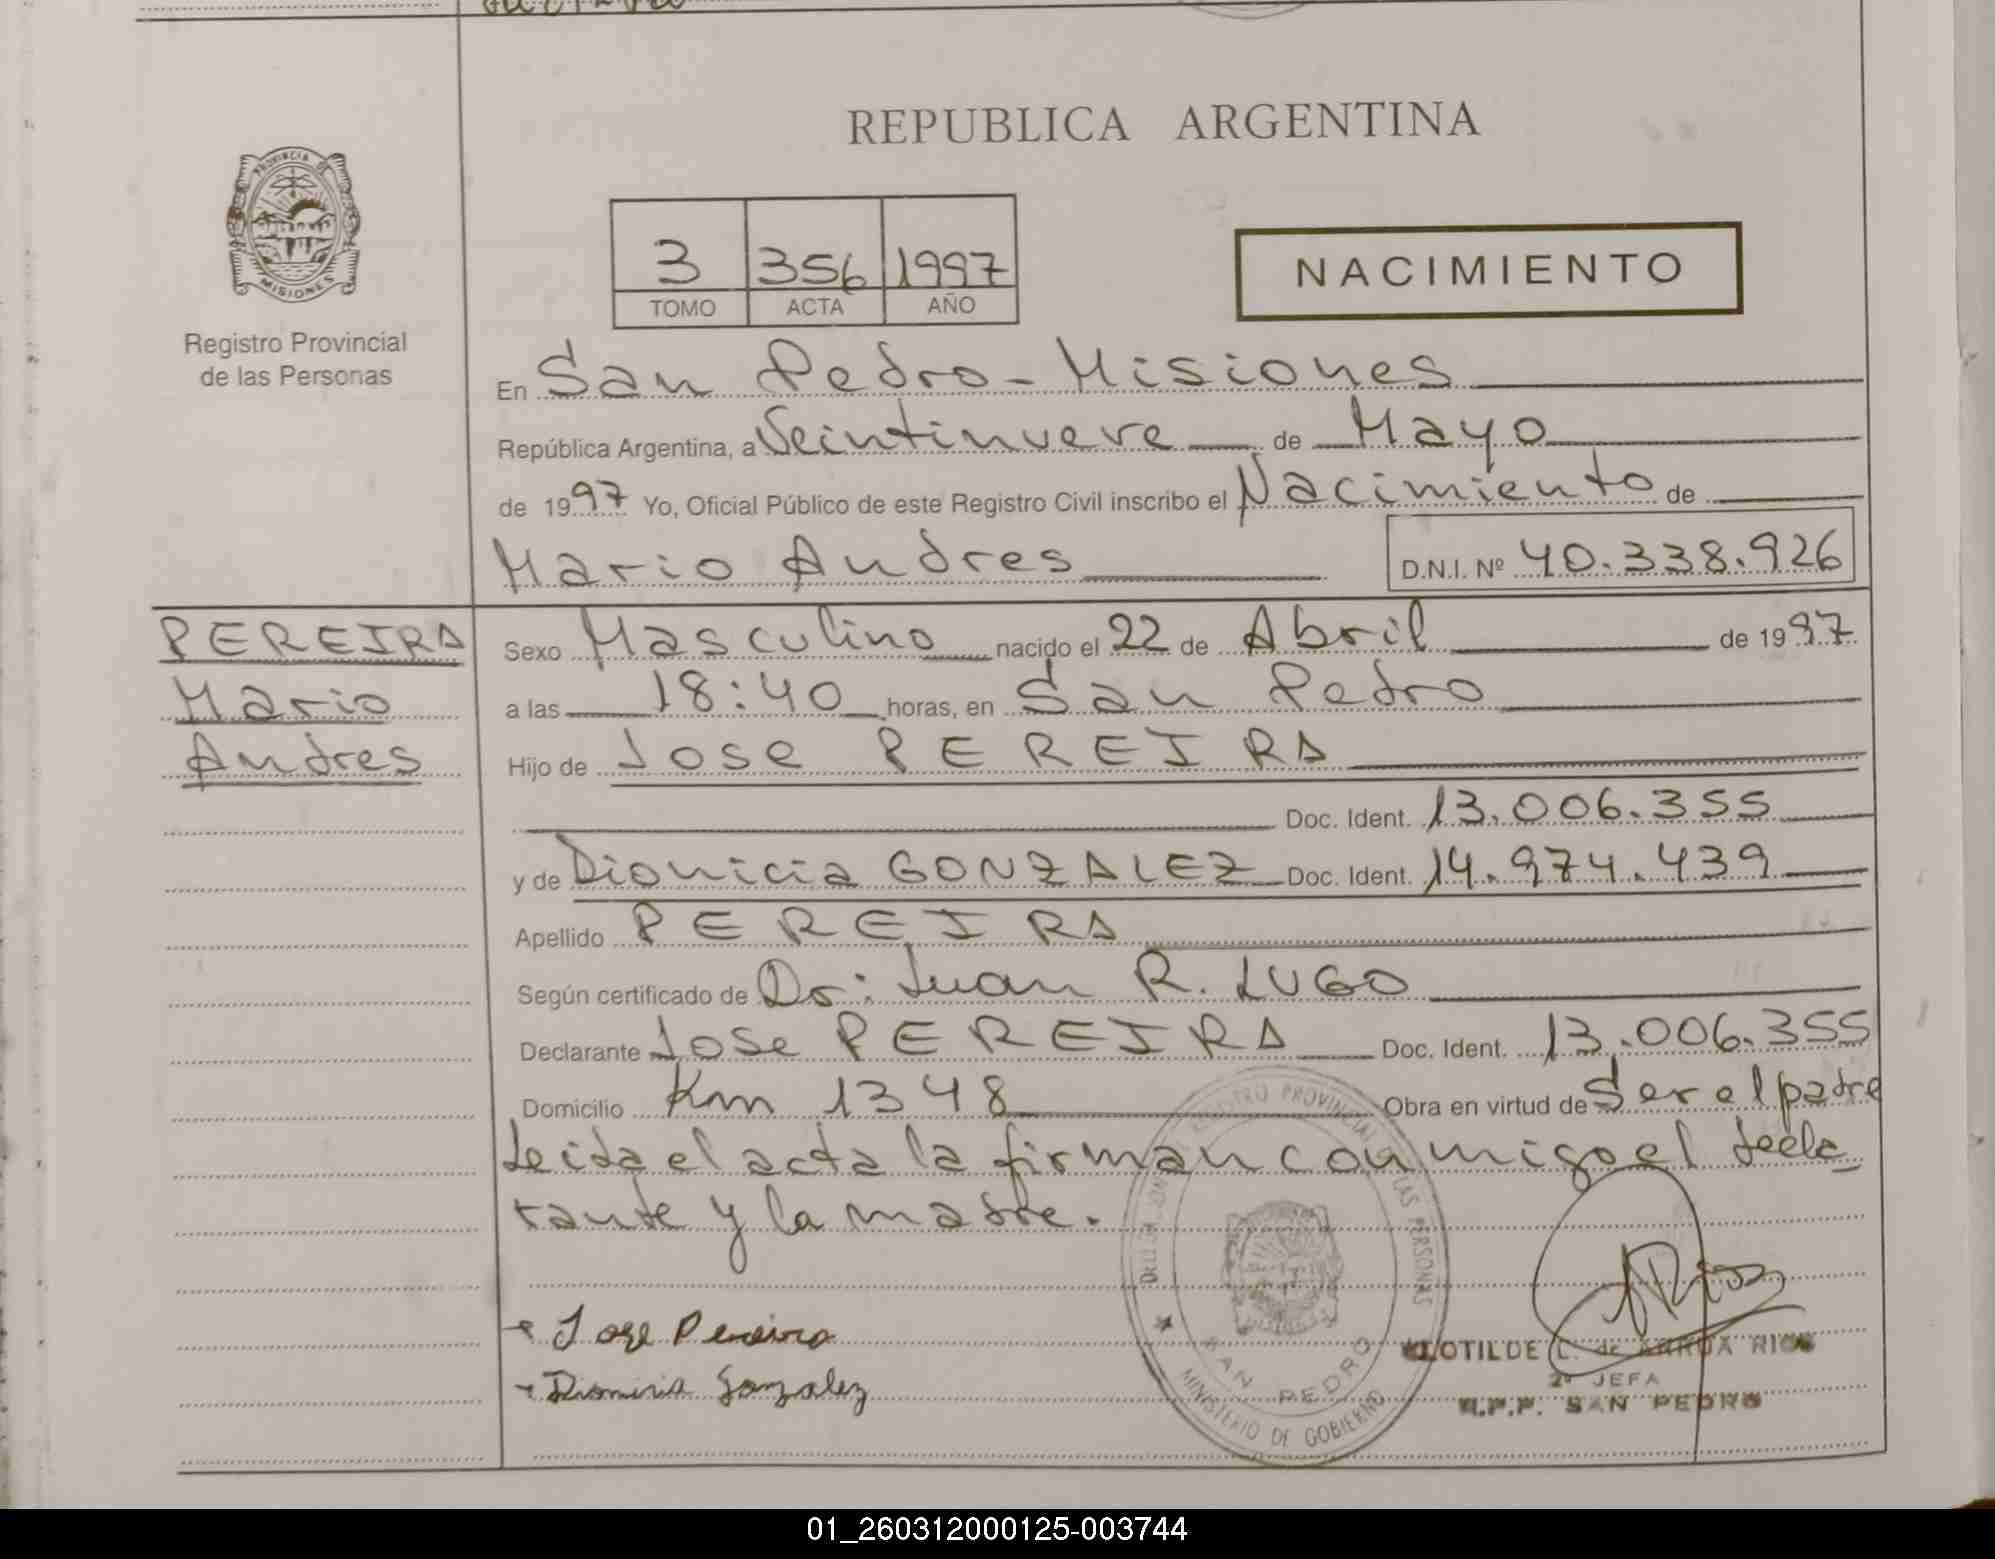 REPUBLICA ARGENTINA
PROVINCIA DE
MISIONES
Registro Provincial
de las Personas
3 356 1997
TOMO ACTA AÑO
NACIMIENTO
En San Pedro - Misiones
República Argentina, a Veintinueve de Mayo
de 1997 Yo, Oficial Público de este Registro Civil inscribo el Nacimiento de
Mario Andres D.N.I. Nº 40.338.926
PEREIRA
Mario
Andres
Sexo Masculino nacido el 22 de Abril de 1997
a las 18:40 horas, en San Pedro
Hijo de Jose PEREIRA
Doc. Ident. 13.006.355
y de Dionicia GONZALEZ Doc. Ident. 14.974.439
Apellido PEREIRA
Según certificado de Dr: Juan R. LUGO
Declarante Jose PEREIRA Doc. Ident. 13.006.355
Domicilio Km 1348 Obra en virtud de Ser el padre
Leida el acta la firman conmigo el decla
rante y la madre.
Jose Pereira
Dionicia Gonzalez
REGISTRO PROVINCIAL DE LAS PERSONAS
SAN PEDRO
MINISTERIO DE GOBIERNO
CLOTILDE L. de ARRUA RIOS
2ª JEFA
R.P.P. SAN PEDRO
01_260312000125-003744